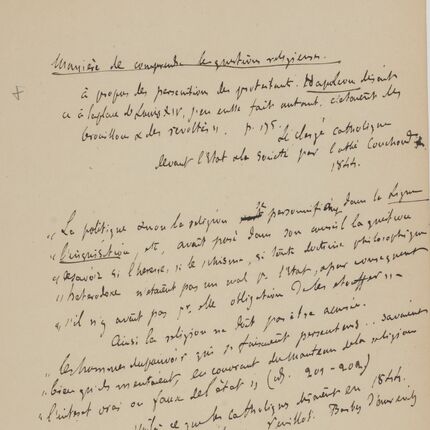 Manière de comprendre les questions religieuses.
à propos des persécutions des protestants. Napoléon disait
"à la place de Louis XIV, j'en eusse fait autant. c'étaient des
brouillons & des révoltés". p. 195.
Le clergé catholique
devant l'Etat & la Société par l'abbé
1844.
"La politique & non la religion personnifiée dans la Ligue
"l'inquisition, etc, avait posé dans son conseil la question
"de savoir si l'hérésie, si le schisme, si toute doctrine philosophique
"hétérodoxe n'étaient pas un mal pr l'Etat, & par conséquent
"s'il n'y avait pas pr elle obligation de les étouffer" –
Ainsi la religion ne doit pas être accusée.
"les hommes du pouvoir qui se faisaient persécuteurs .. savaient
"bien qu'ils mentaient, en couvrant du manteau de la religion
"l'intérêt vrai ou faux de l'état" (id. 201-202)
Voilà ce que les catholiques disaient en 1844.
Veuillot. Barbey d'Aurevilly